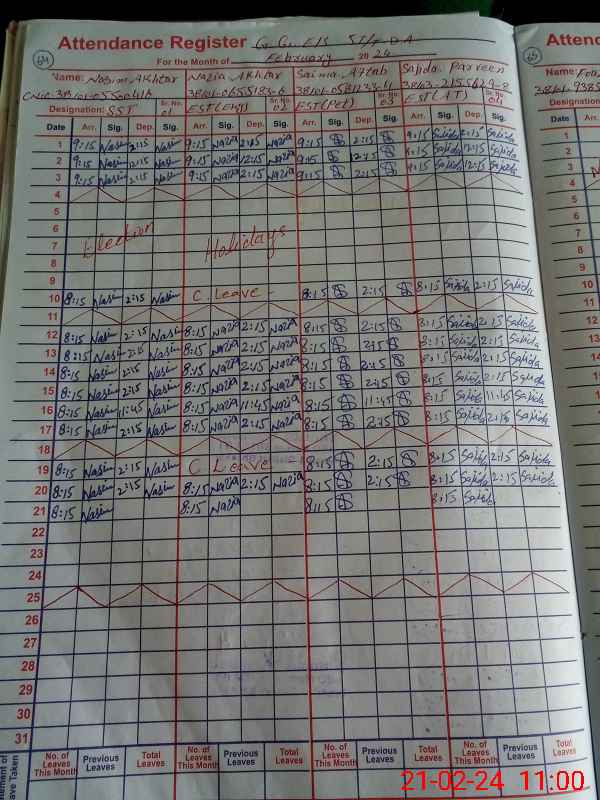 64
Attendance Register G.G.E/S
For the Month of February 2024
Name: Nasim Akhtar Nazia Akhtar Saima Aftab Sajida Parveen
Designation: SST Sr. No. 01 EST(Eng) Sr. No. 02 EST(Pet) Sr. No. 03 EST(AT) Sr. No. 04
Date Arr. Sig. Dep. Sig. Arr. Sig. Dep. Sig. Arr. Sig. Dep. Sig. Arr. Sig. Dep. Sig.
1 9:15 Nasim 2:15 Nasim 9:15 Nazia 2:15 Nazia 9:15 2:15 9:15 Sajida 2:15 Sajida
2 9:15 Nasim 12:15 Nasim 9:15 Nazia 12:15 Nazia 9:15 12:15 9:15 Sajida 12:15 Sajida
3 9:15 Nasim 2:15 Nasim 9:15 Nazia 2:15 Nazia 9:15 2:15 9:15 Sajida 12:15 Sajida
4
5
6
7 Election Holidays
8
9
10 8:15 Nasim 2:15 Nasim C. Leave - 8:15 2:15 8:15 Sajida 2:15 Sajida
11
12 8:15 Nasim 2:15 Nasim 8:15 Nazia 2:15 Nazia 8:15 2:15 8:15 Sajida 2:15 Sajida
13 8:15 Nasim 2:15 Nasim 8:15 Nazia 2:15 Nazia 8:15 2:15 8:15 Sajida 2:15 Sajida
14 8:15 Nasim 2:15 Nasim 8:15 Nazia 2:15 Nazia 8:15 2:15 8:15 Sajida 2:15 Sajida
15 8:15 Nasim 2:15 Nasim 8:15 Nazia 2:15 Nazia 8:15 2:15 8:15 Sajida 2:15 Sajida
16 8:15 Nasim 11:45 Nasim 8:15 Nazia 11:45 Nazia 8:15 11:45 8:15 Sajida 11:45 Sajida
17 8:15 Nasim 2:15 Nasim 8:15 Nazia 2:15 Nazia 8:15 2:15 8:15 Sajida 2:15 Sajida
18
19 8:15 Nasim 2:15 Nasim C. Leave 8:15 2:15 8:15 Sajida 2:15 Sajida
20 8:15 Nasim 2:15 Nasim 8:15 Nazia 2:15 Nazia 8:15 2:15 8:15 Sajida 2:15 Sajida
21 8:15 Nasim 8:15 Nazia 8:15 8:15 Sajida
22
23
24
25
26
27
28
29
30
31
No. of Leaves This Month Previous Leaves Total Leaves No. of Leaves This Month Previous Leaves Total Leaves No. of Leaves This Month Previous Leaves Total Leaves No. of Leaves This Month Previous Leaves
65
Name:
Designation:
Date
1
2
3
4
5
6
7
8
9
10
11
12
13
14
15
16
17
18
19
20
21
22
23
24
25
26
27
28
29
30
31
21-02-24 11:00